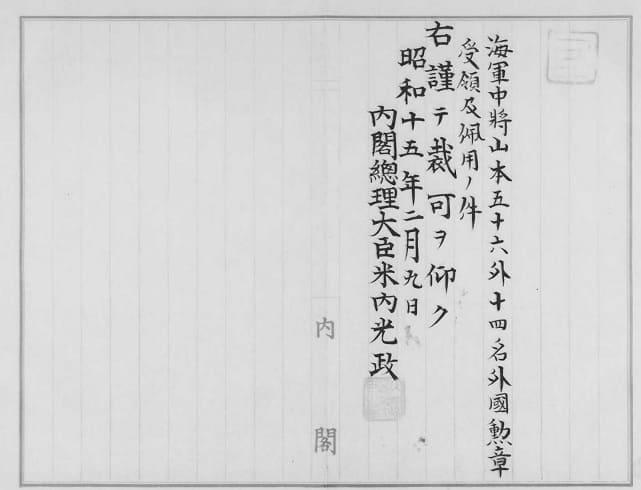 海軍中將山本五十六外十四名外國勲章
受領及佩用ノ件
右謹テ裁可ヲ仰ク
昭和十五年二月九日
內閣總理大臣米內光政
內閣